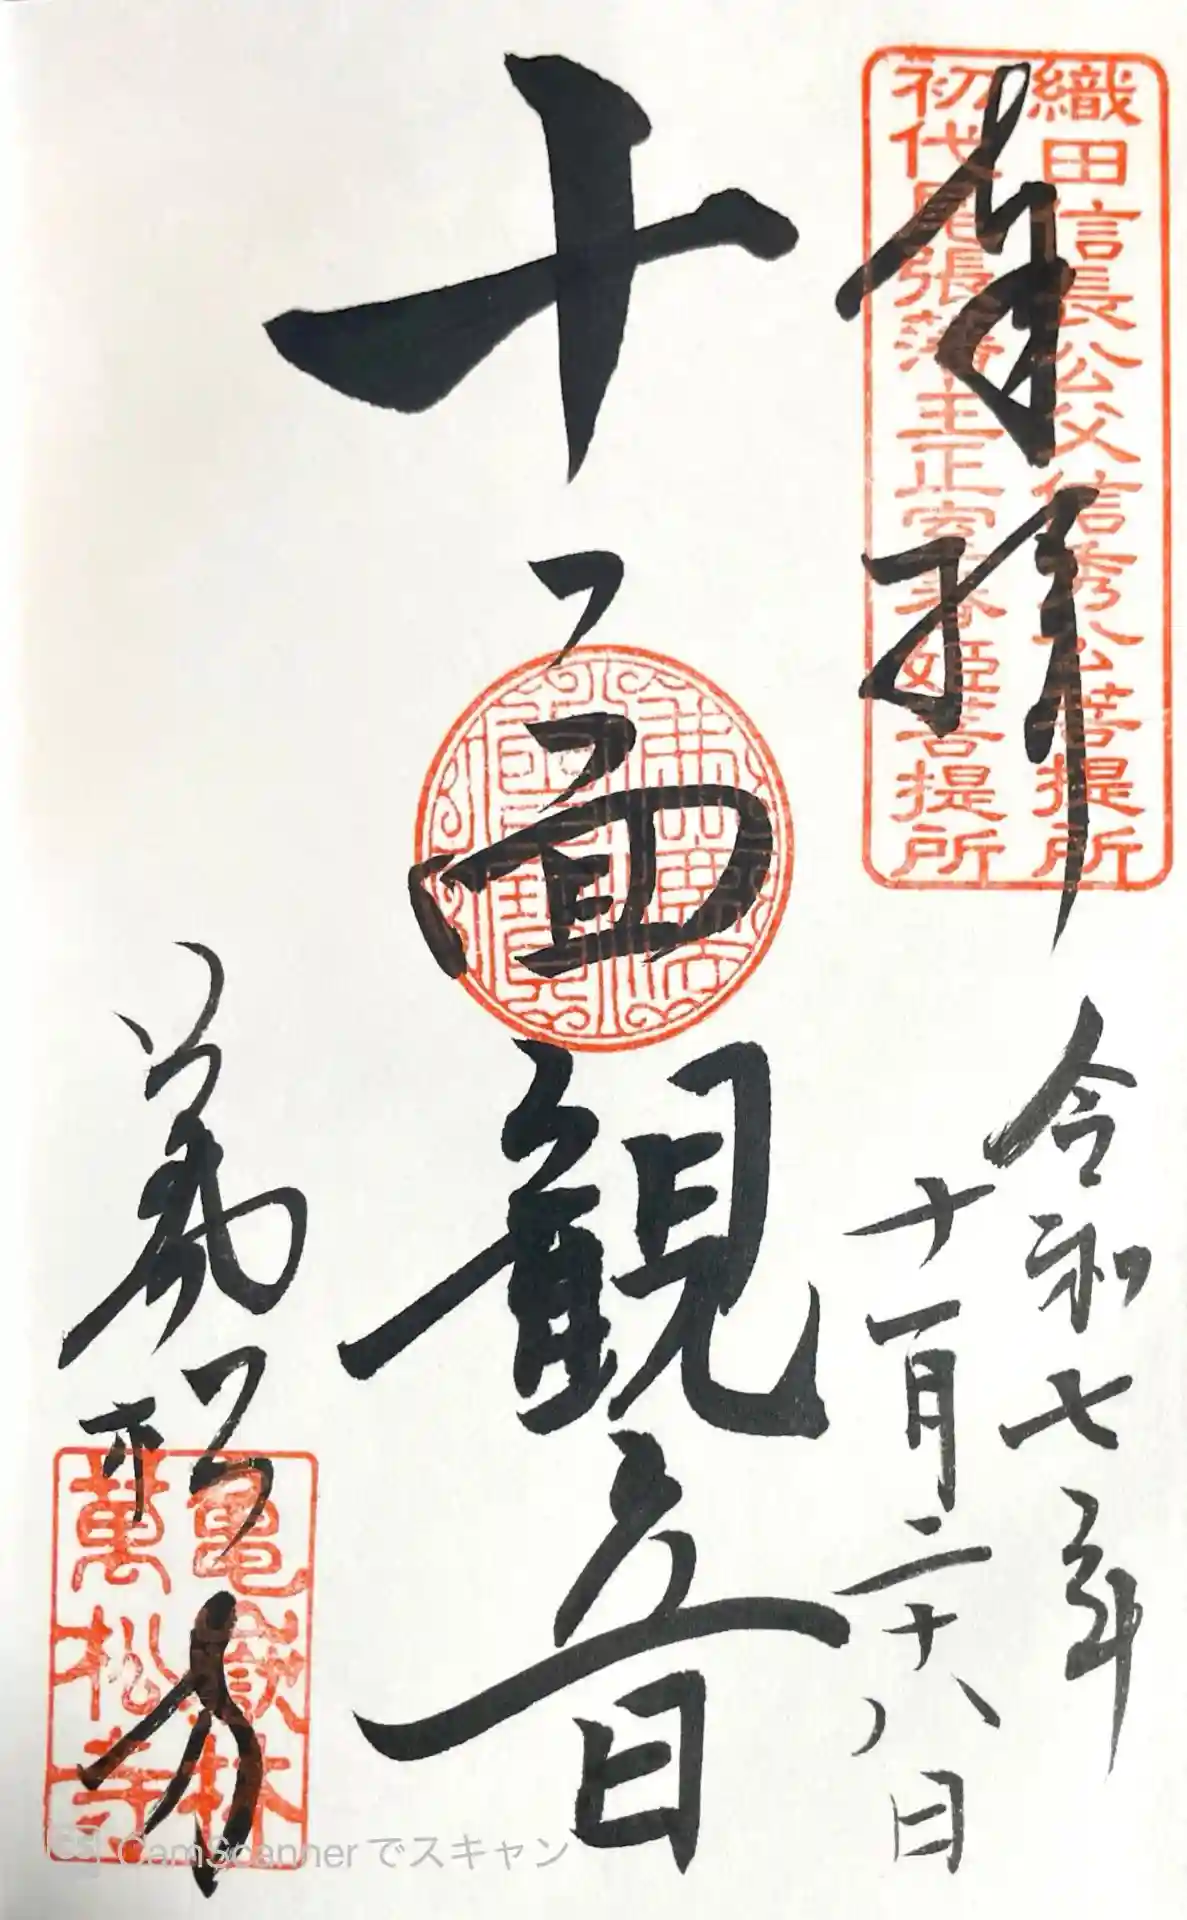 奉拝
織田信長公父信秀公菩提所
初代尾張藩主正室春姫菩提所
令和七年
十一月二十八日
十一面観音
萬松寺
亀嶽林
萬松寺
CamScannerでスキャン